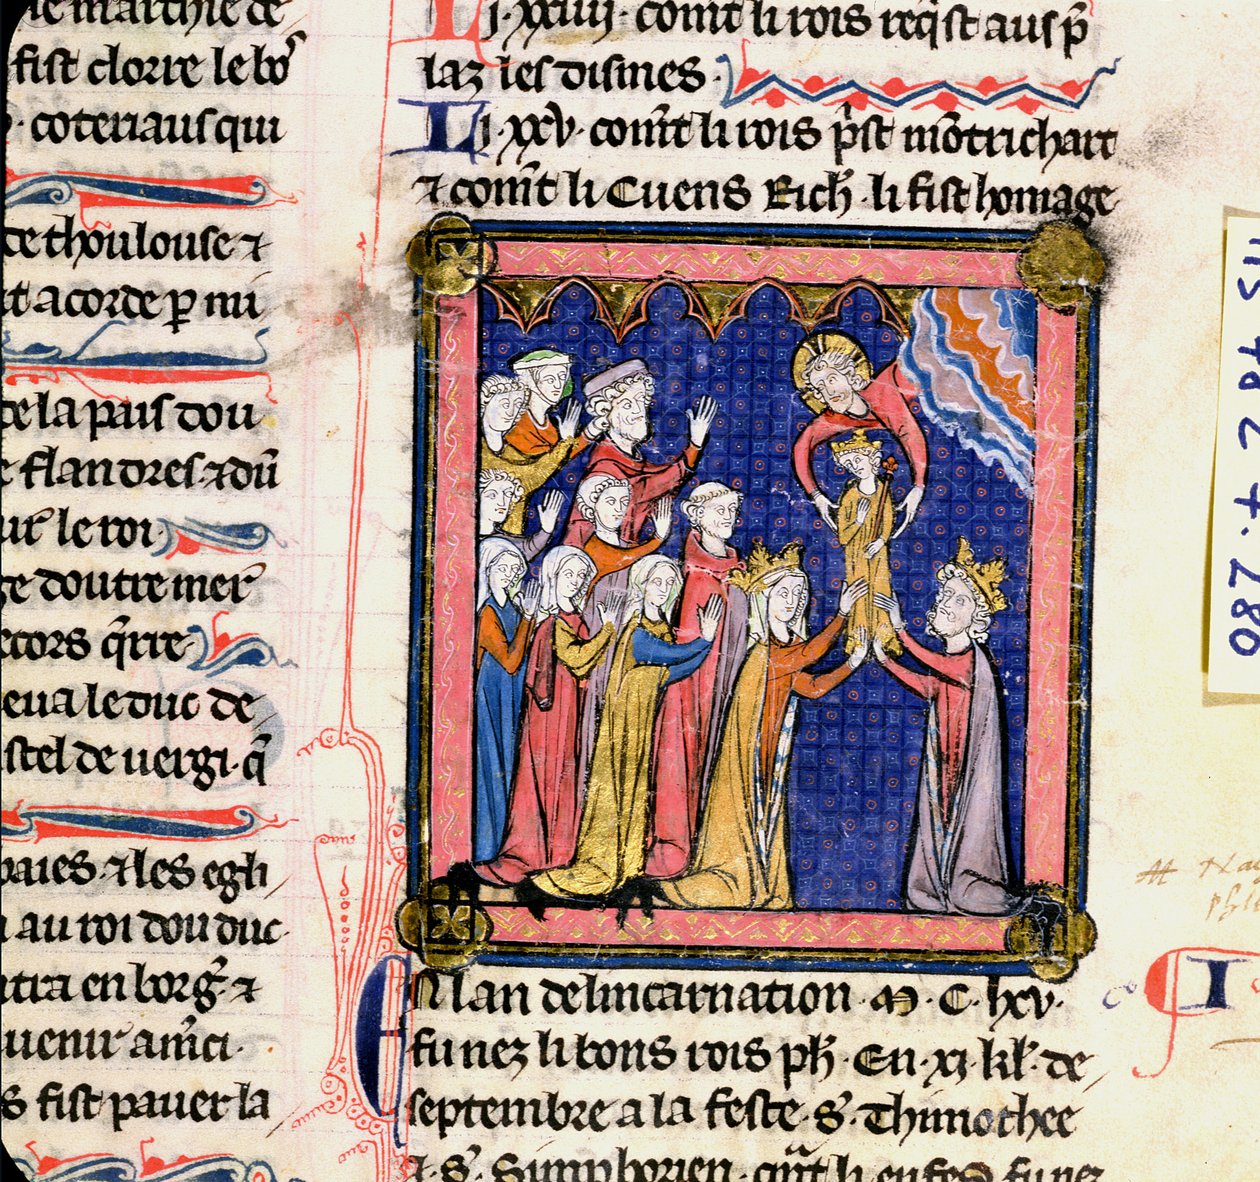 de
fist clorre le bõ
coteriaus qui
de thoulouse ⁊
t acorde ꝑ mi
de la pais dou
e flandres ⁊ dũ
ur le roi
ge doutre mer
ecors q̃rre
eua le duc de
astel de uergi · q̃
paies · ⁊ les egli
au roi dou duc ·
ntra en borg̃ · ⁊
uenir am̃ci ·
s fist pauer la
Li · xxiiii · com̃t li rois req̃ist aus p̃
laz les dismes ·
Li · xxv · com̃t li rois p̃st mõtrichart
⁊ com̃t li Cuens Rich̃ · li fist homage
EN lan delincarnation · M · C · lxv ·
fu nez li bons rois ph̃ · En · xj · kl̃ · de
septembre a la feste · S̃ · Thimothee
⁊ · S̃ · Simphorien · q̃nt li enfes fu nez
I
087 · + 2 Pd SH